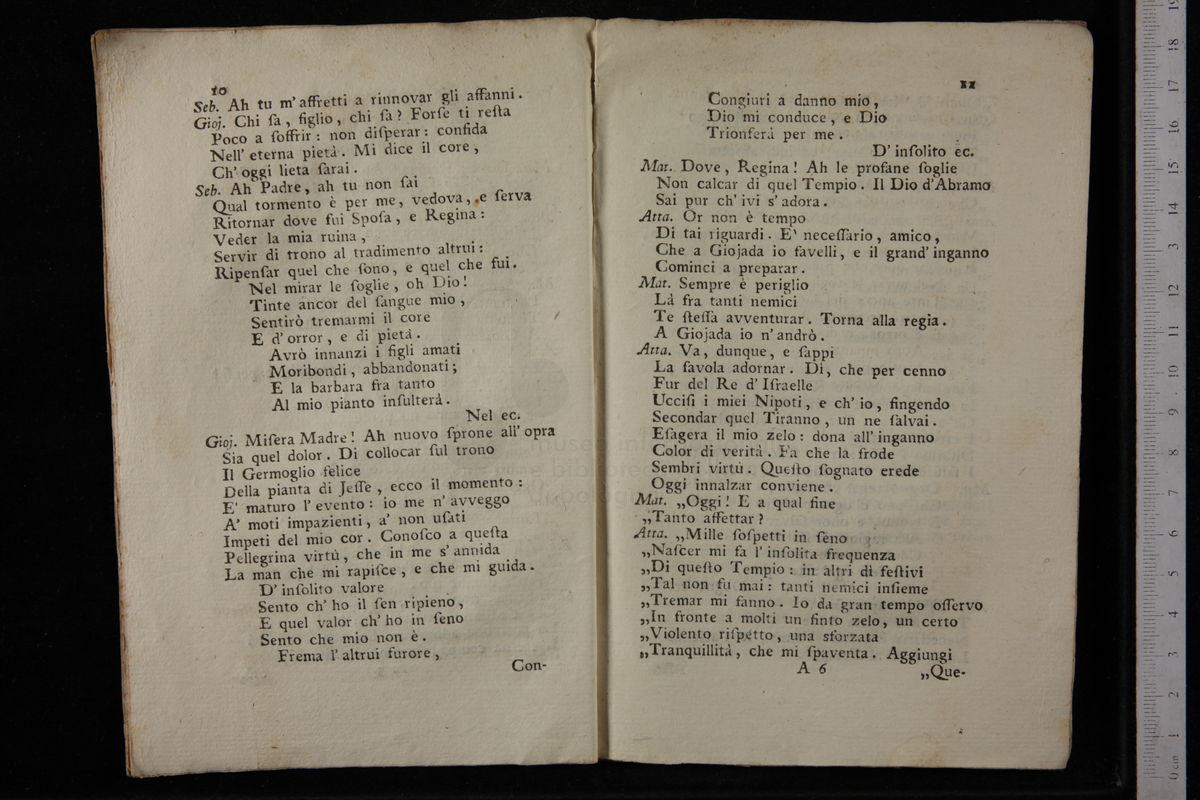 10
Seb. Ah tu m' affretti a rinnovar gli affanni.
Gioj. Chi ſa, figlio, chi ſa? Forſe ti reſta
Poco a ſoffrir: non diſperar: confida
Nell' eterna pietà. Mi dice il core,
Ch' oggi lieta ſarai.
Seb. Ah Padre, ah tu non ſai
Qual tormento è per me, vedova, e ſerva
Ritornar dove fui Spoſa, e Regina:
Veder la mia ruina,
Servir di trono al tradimento altrui:
Ripenſar quel che ſono, e quel che fui.
Nel mirar le ſoglie, oh Dio!
Tinte ancor del ſangue mio,
Sentirò tremarmi il core
E d' orror, e di pietà.
Avrò innanzi i figli amati
Moribondi, abbandonati;
E la barbara fra tanto
Al mio pianto inſulterà.
Nel ec.
Gioj. Miſera Madre! Ah nuovo ſprone all' opra
Sia quel dolor. Di collocar ſul trono
Il Germoglio felice
Della pianta di Jeſſe, ecco il momento:
E' maturo l' evento: io me n' avveggo
A' moti impazienti, a' non uſati
Impeti del mio cor. Conoſco a queſta
Pellegrina virtù, che in me s' annida
La man che mi rapiſce, e che mi guida.
D' inſolito valore
Sento ch' ho il ſen ripieno,
E quel valor ch' ho in ſeno
Sento che mio non è.
Frema l' altrui furore,
Con-
11
Congiuri a danno mio,
Dio mi conduce, e Dio
Trionferà per me.
D' inſolito ec.
Mat. Dove, Regina! Ah le profane ſoglie
Non calcar di quel Tempio. Il Dio d'Abramo
Sai pur ch' ivi s' adora.
Atta. Or non è tempo
Di tai riguardi. E' neceſſario, amico,
Che a Giojada io favelli, e il grand' inganno
Cominci a preparar.
Mat. Sempre è periglio
Là fra tanti nemici
Te ſteſſa avventurar. Torna alla regia.
A Giojada io n' andrò.
Atta. Va, dunque, e ſappi
La favola adornar. Di, che per cenno
Fur del Re d' Iſraelle
Ucciſi i miei Nipoti, e ch' io, fingendo
Secondar quel Tiranno, un ne ſalvai.
Eſagera il mio zelo: dona all' inganno
Color di verità. Fa che la frode
Sembri virtù. Queſto ſognato erede
Oggi innalzar conviene.
Mat. „Oggi! E a qual fine
„Tanto affettar?
Atta. „Mille ſoſpetti in ſeno
„Naſcer mi fa l' inſolita frequenza
„Di queſto Tempio: in altri dì feſtivi
„Tal non fu mai: tanti nemici inſieme
„Tremar mi fanno. Io da gran tempo oſſervo
„In fronte a molti un finto zelo, un certo
„Violento riſpetto, una sforzata
„Tranquillità, che mi ſpaventa. Aggiungi
A 6
„Que-